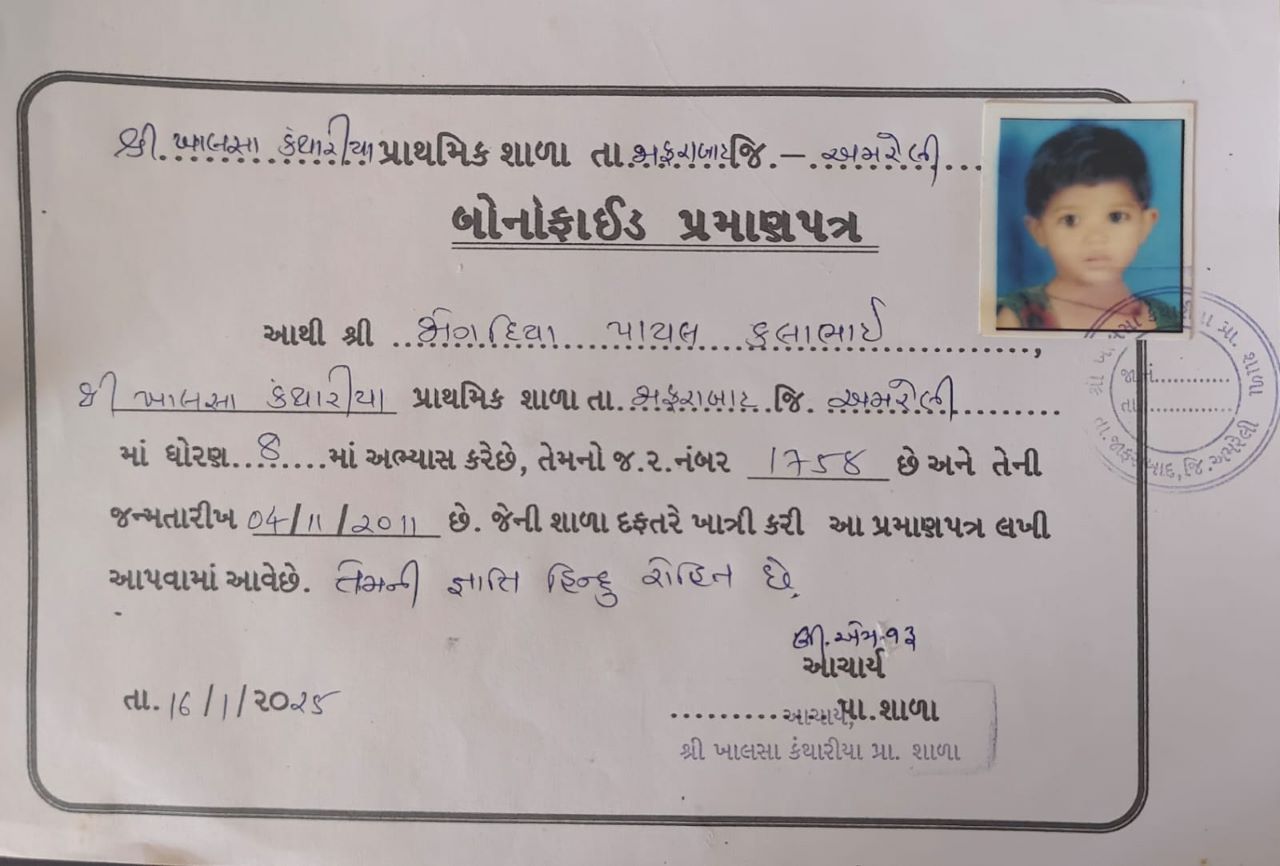 શ્રી ખાલસા કંથારીયા પ્રાથમિક શાળા તા. જાફરાબાદ જિ. – અમરેલી
બોનોફાઈડ પ્રમાણપત્ર
આથી શ્રી પાયલ કલાભાઈ,
શ્રી ખાલસા કંથારીયા પ્રાથમિક શાળા તા. જાફરાબાદ જિ. અમરેલી
માં ધોરણ 8 માં અભ્યાસ કરેછે, તેમનો જ.ર.નંબર છે અને તેની
જન્મતારીખ 04/11/2011 છે. જેની શાળા દફતરે ખાત્રી કરી આ પ્રમાણપત્ર લખી
આપવામાં આવેછે. તેમની જ્ઞાતિ હિન્દુ રોહિત છે.
આચાર્ય
તા. 16/1/૨૦૨૫
પ્રા.શાળા
આચાર્ય,
શ્રી ખાલસા કંથારીયા પ્રા. શાળા
શ્રી ખાલસા કંથારીયા પ્રા. શાળા
જા.નં.
તા.
તા.જાફરાબાદ, જિ.અમરેલી